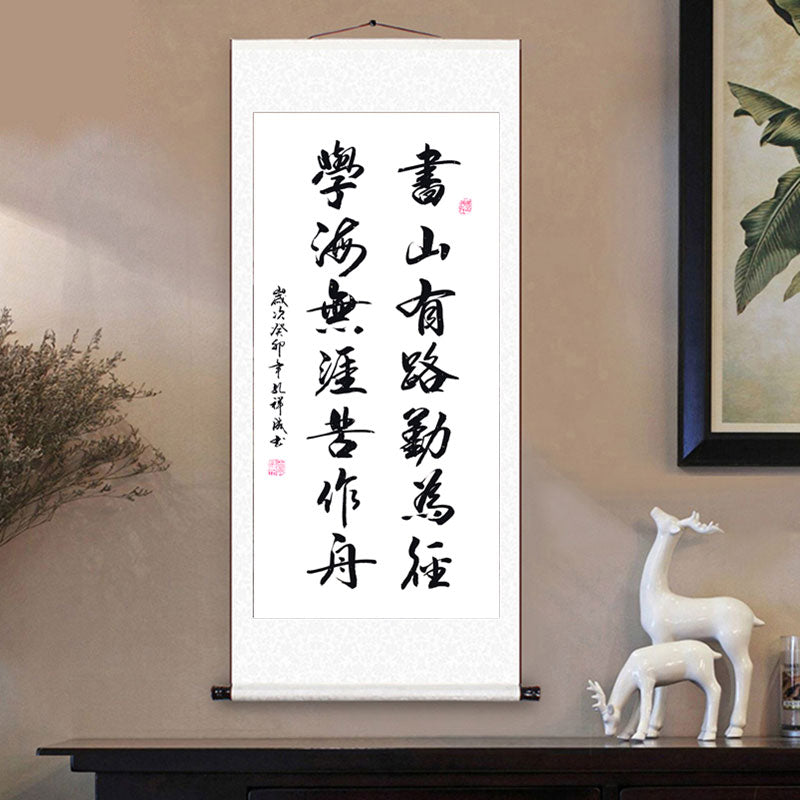 書山有路勤為徑
學海無涯苦作舟
歲次癸卯年